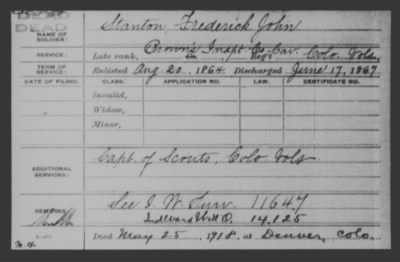 DEAD
DEAD
NAME OF SOLDIER: Stanton, Frederick John
SERVICE: Late rank, Brown's Inspt. Co. Cav. Reg't Colo. Vols.
TERM OF SERVICE: Enlisted Aug. 20, 1864 Discharged June 17, 1867
DATE OF FILING. CLASS. APPLICATION NO. LAW. CERTIFICATE NO.
Invalid,
Widow,
Minor,
ADDITIONAL SERVICES: Capt. of Scouts, Colo Vols
REMARKS: See I. W. 11647
14,125
Died May 25, 1918, at Denver, Colo.